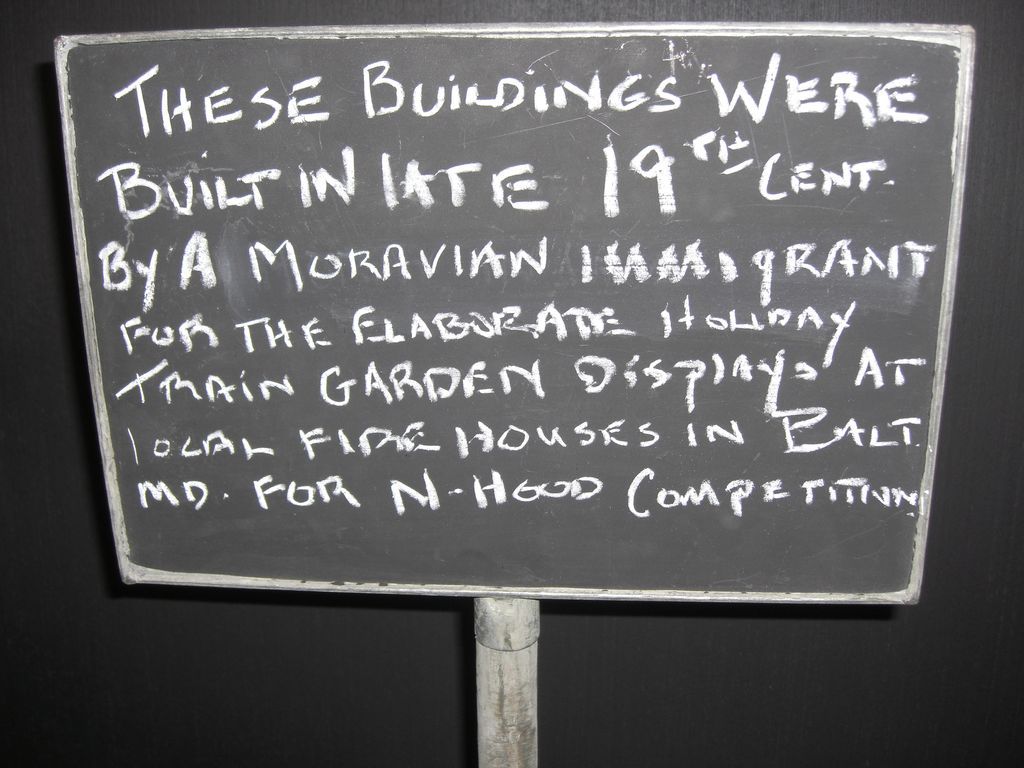 THESE BUILDINGS WERE
BUILT IN LATE 19TH CENT.
BY A MORAVIAN IMMIGRANT
FOR THE ELABORATE HOLIDAY
TRAIN GARDEN DISPLAYS AT
LOCAL FIRE HOUSES IN BALT
MD. FOR N-HOOD COMPETITION